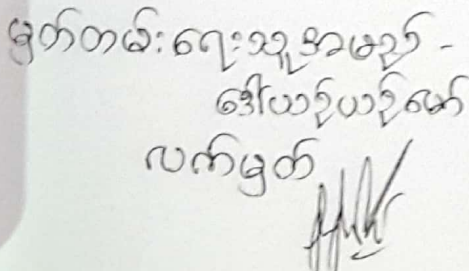 မှတ်တမ်းရေးသူအမည် -
ဒေါ်ယဉ်ယဉ်မော်
လက်မှတ်